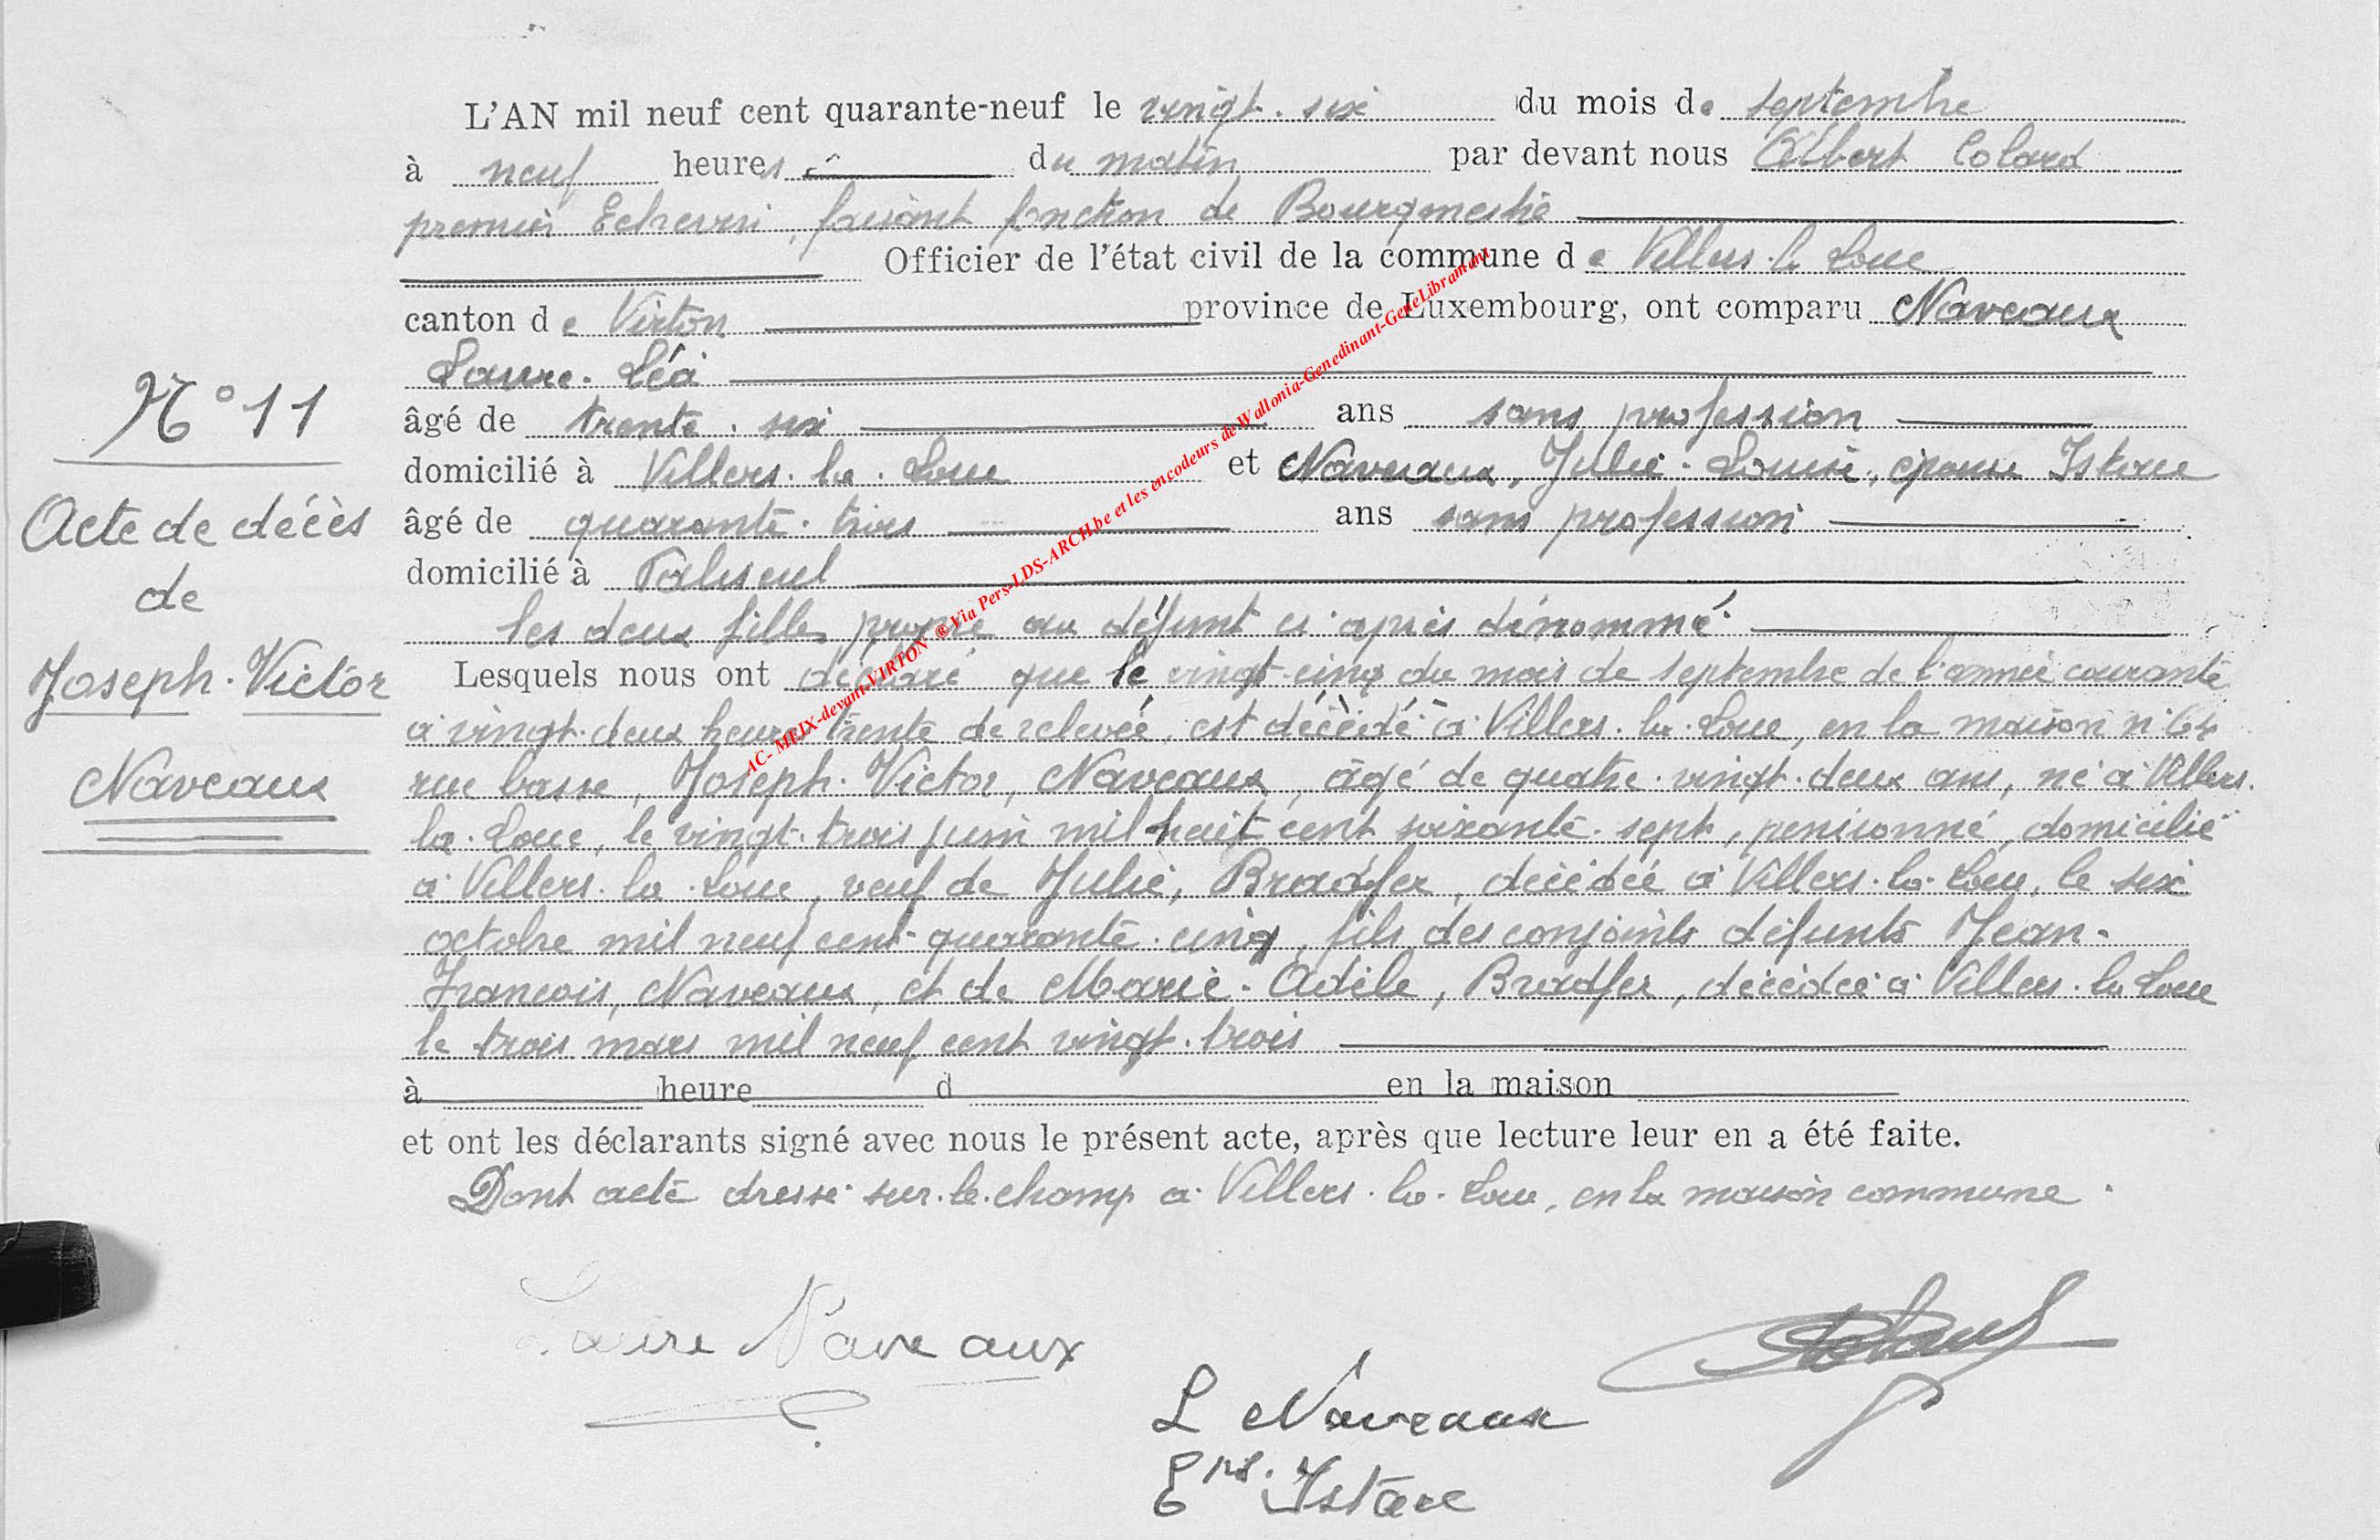 L'AN mil neuf cent quarante-neuf le vingt-six du mois de septembre
à neuf heures du matin par devant nous Albert Colard
premier Echevin, faisant fonction de Bourgmestre
Officier de l'état civil de la commune de Villers-la-Loue
canton de Virton province de Luxembourg, ont comparu Naveaux
Laure-Léa
âgé de trente-six ans sans profession
domicilié à Villers-la-Loue et Naveaux, Julie-Louise, épouse Istace
âgé de quarante-trois ans sans profession
domicilié à Paliseul
les deux filles propre au défunt ci-après dénommé
Lesquels nous ont déclaré que le vingt-cinq du mois de septembre de l'année courante
à vingt-deux heures trente de relevée, est décédé à Villers-la-Loue, en la maison n° 64
rue basse, Joseph-Victor, Naveaux, âgé de quatre-vingt-deux ans, né à Villers-
la-Loue, le vingt-trois juin mil huit cent soixante-sept, pensionné, domicilié
à Villers-la-Loue, veuf de Julie, Bradfer, décédée à Villers-la-Loue, le six
octobre mil neuf cent quarante-cinq, fils des conjoints défunts Jean-
François, Naveaux, et de Marie-Adèle, Bradfer, décédée à Villers-la-Loue
le trois mars mil neuf cent vingt-trois
à heure d en la maison
et ont les déclarants signé avec nous le présent acte, après que lecture leur en a été faite.
Dont acte dressé sur-le-champ à Villers-la-Loue, en la maison commune.
N° 11
Acte de décès
de
Joseph-Victor
Naveaux
Laure Naveaux
L Naveaux
Ep. Istace
AColard
AC- MEIX-devant-VIRTON ® Via Pers-LDS-ARCH.be et les encodeurs de Wallonia-Genedinant-GeneLibramont